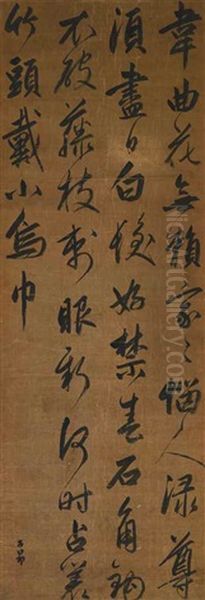 韋曲花無賴家々惱人渌尊
須盡日白髮好禁春石角鉤
衣破藤枝刺眼新何時占叢
竹頭戴小烏巾
子昂